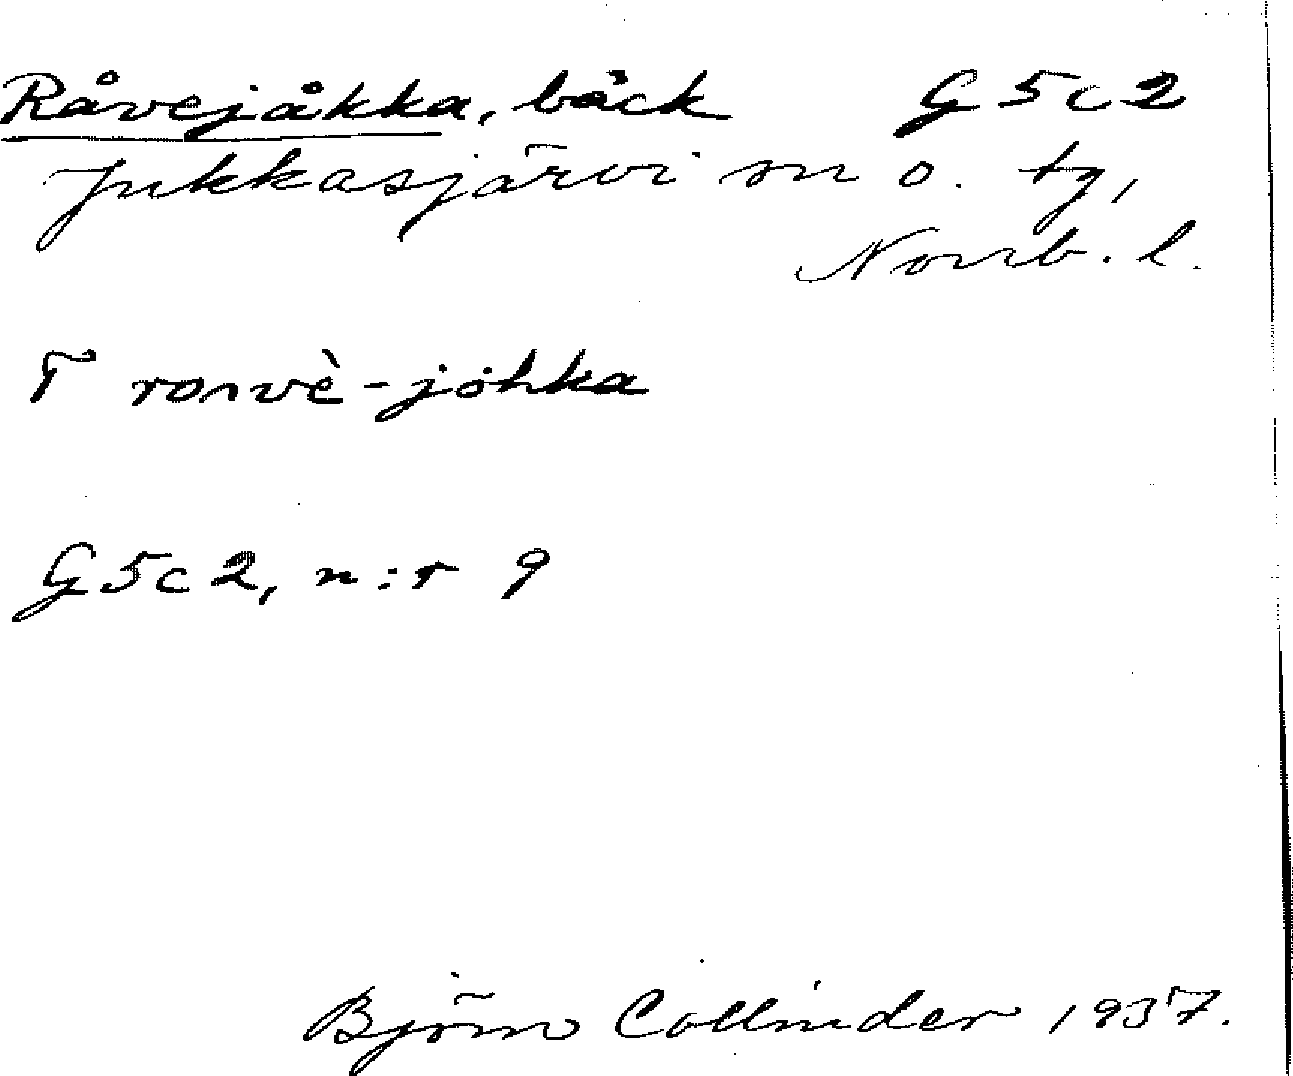 Råvejåkka, bäck G 5 c 2
Jukkasjärvi sn o. tg,
Norrb. l.
T roɿvè-jòhka
G 5 c 2, n:r 9
Björn Collinder 1937.